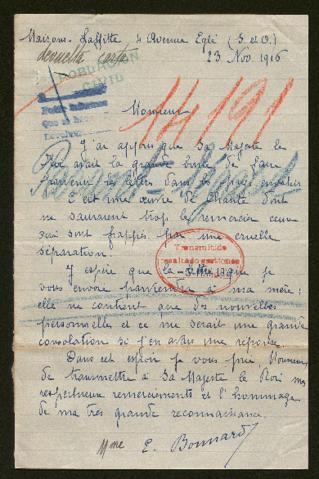 Maisons-Laffitte 4 Avenue Eglé (S. et O.)
devuelta carta 23 Nov 1916
POBLACION
CIVIL
14191
Monsieur
J'ai appris que Sa Majesté le
Roi avait la grande bonté de faire
parvenir les lettres dans les pays envahis
C'est une œuvre de charité dont
ne sauraient trop le remercier ceux
qui sont frappés par une cruelle
séparation.
Transmitido
resultado gestiones
J'espère que la lettre que je
vous envoie parviendra à ma mère:
elle ne contient que des nouvelles
personnelles et ce me serait une grande
consolation si j'en avais une réponse.
Dans cet espoir je vous prie Monsieur
de transmettre à Sa Majesté le Roi mes
respectueux remerciements et l'hommage
de ma très grande reconnaissance.
Mme E. Bonnard